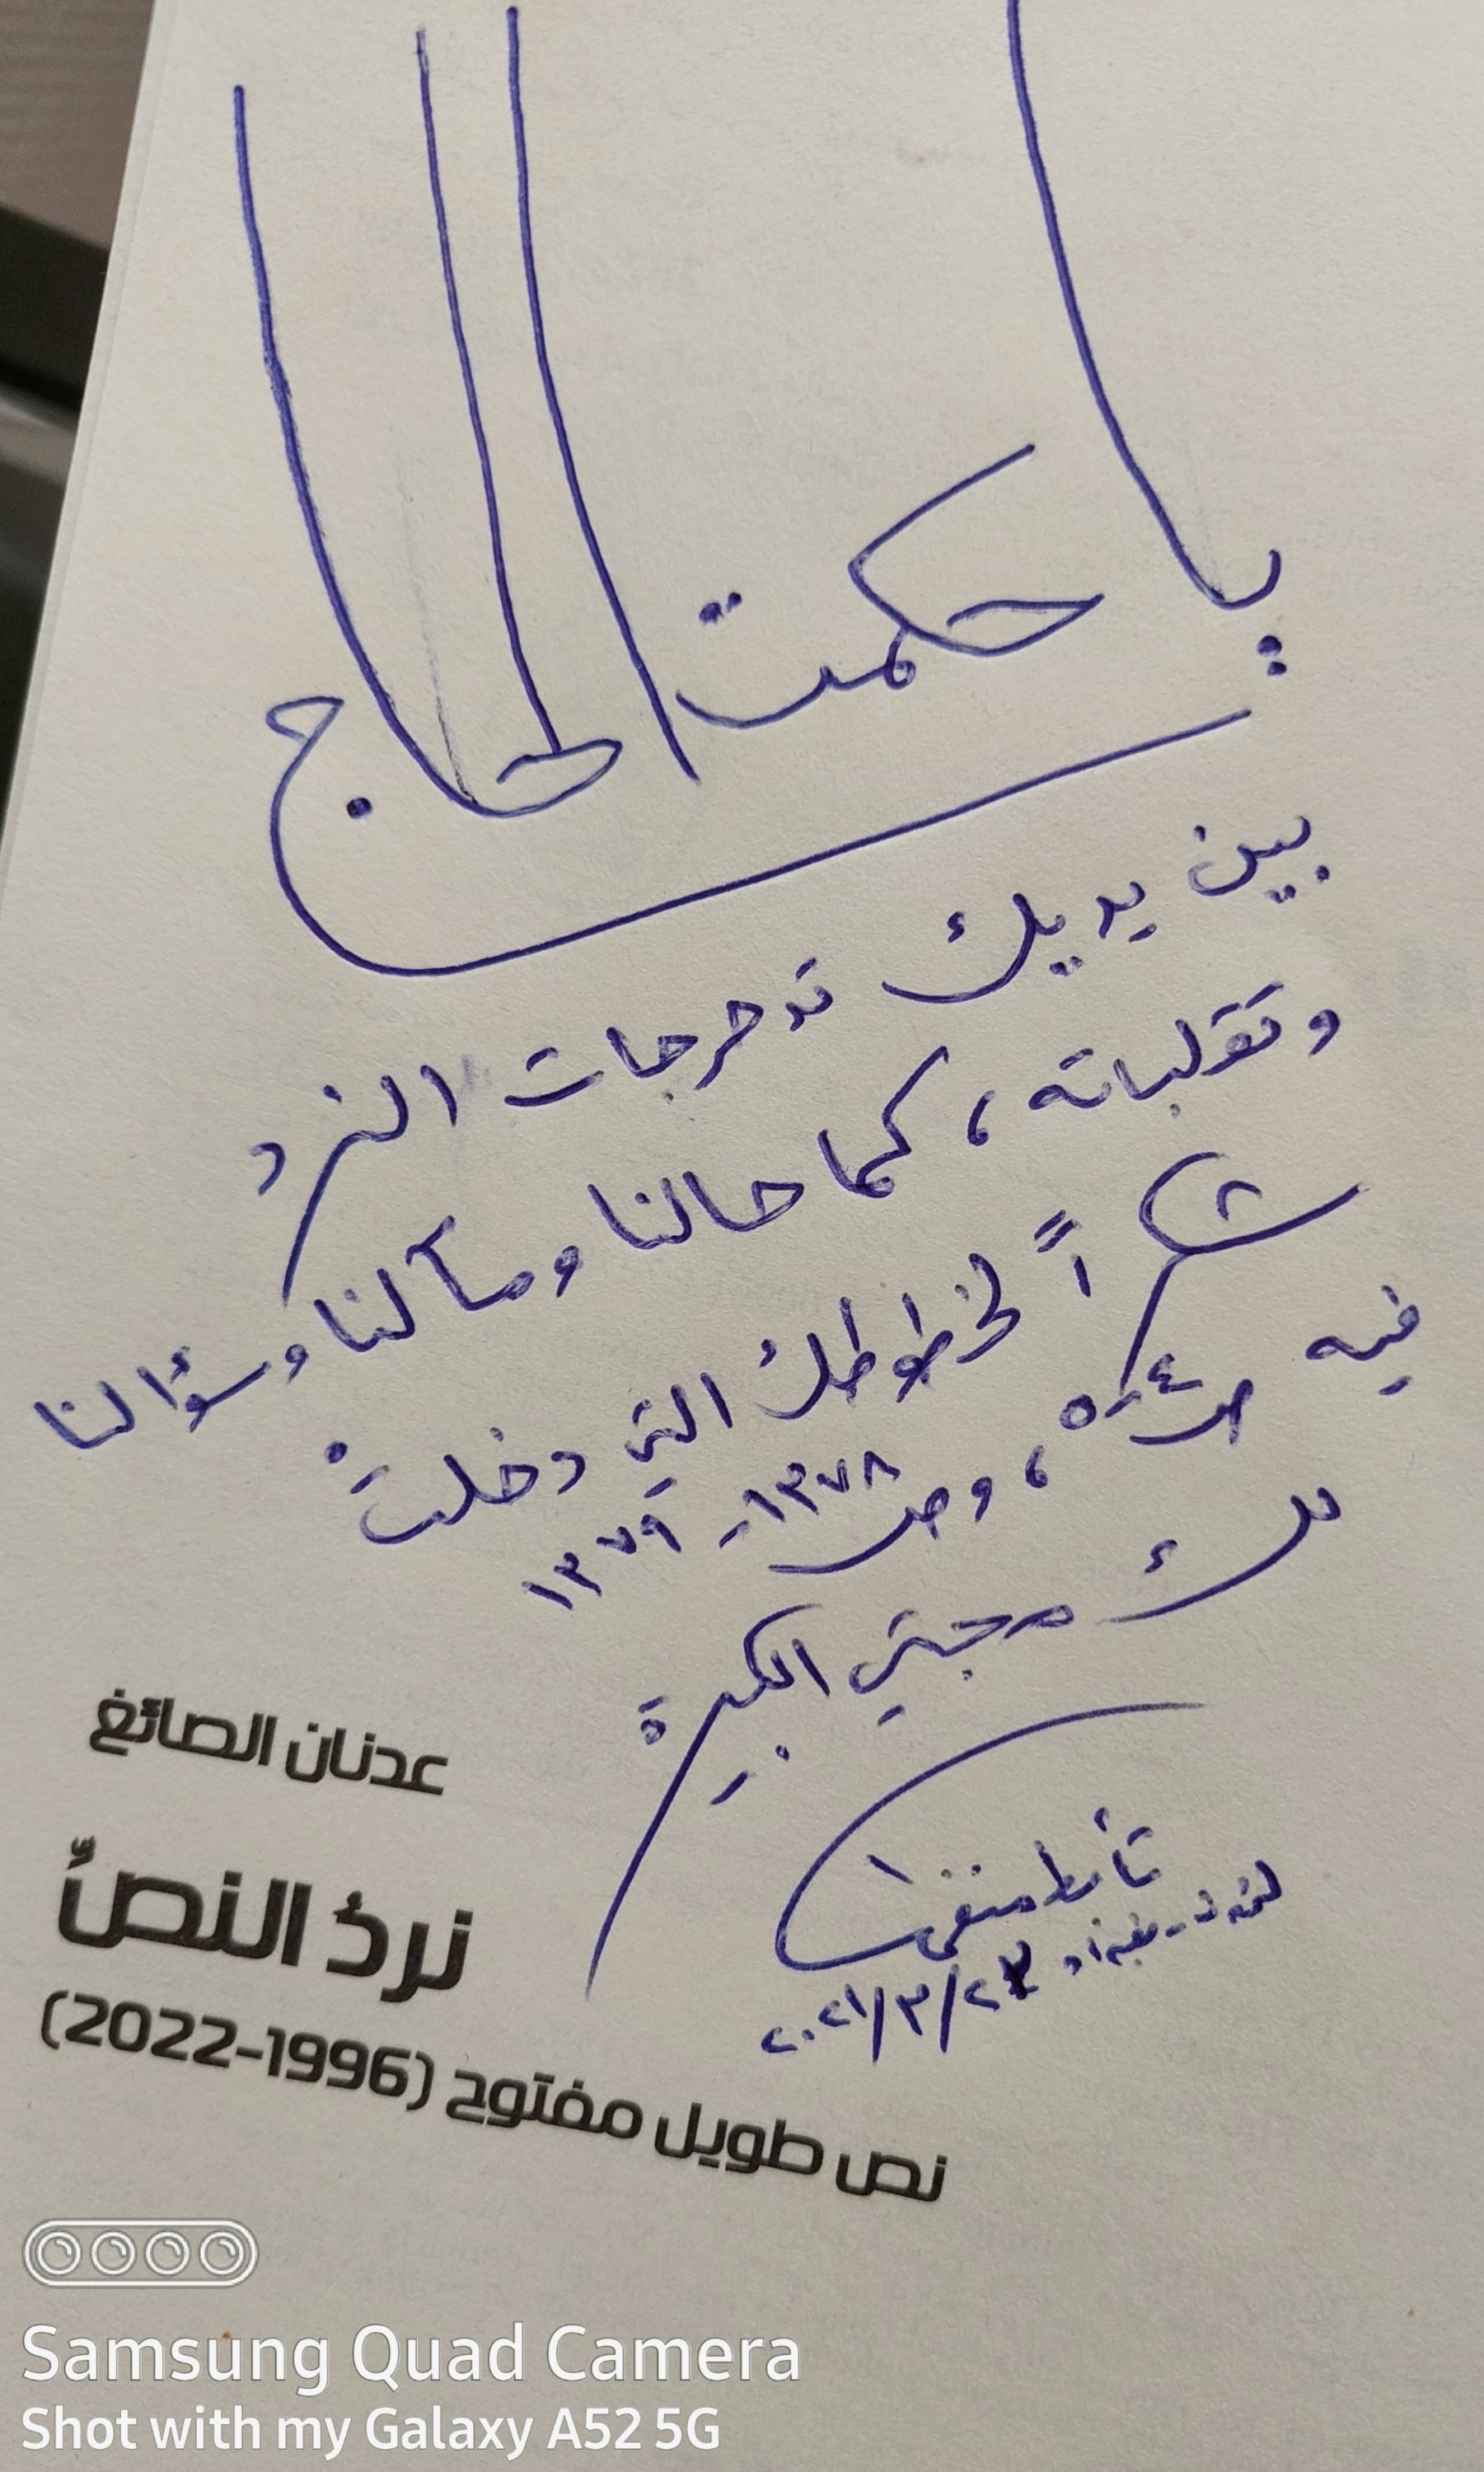 يا حكمت الحاج
بين يديك تدحرجات النرد
وتقلباته، كما حالنا ومآلنا وسؤالنا
شكراً لخطوطك التي دخلتْ
فيه ص٥٠٤، وص ١٣٧٨ - ١٣٧٩
لك محبتي الكبيرة
تأبط منفى
بغداد
عدنان الصائغ
نردُ النصِّ
نص طويل مفتوح (1996-2022)
Samsung Quad Camera
Shot with my Galaxy A52 5G